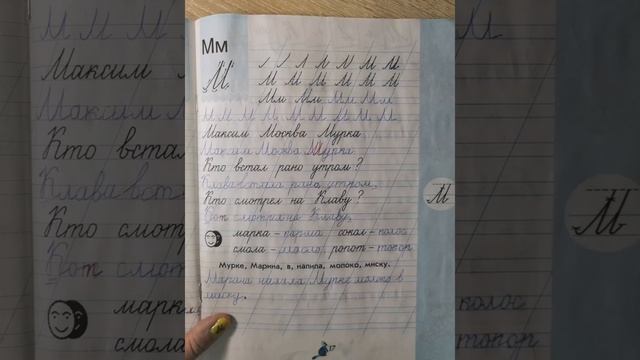 Мм
М М М М М М М
Мм Мм Мм Мм
М М М М М М М М М
Максим Москва Мурка
Максим Москва Мурка
Кто встал рано утром?
Клава встала рано утром.
Кто смотрел на Клаву?
Кот смотрел на Клаву.
М
марка – рамка сокол – колос
смола – масло ропот – топор
Мурке, Марина, в, налила, молоко, миску.
Марина налила Мурке молоко в
миску.
17